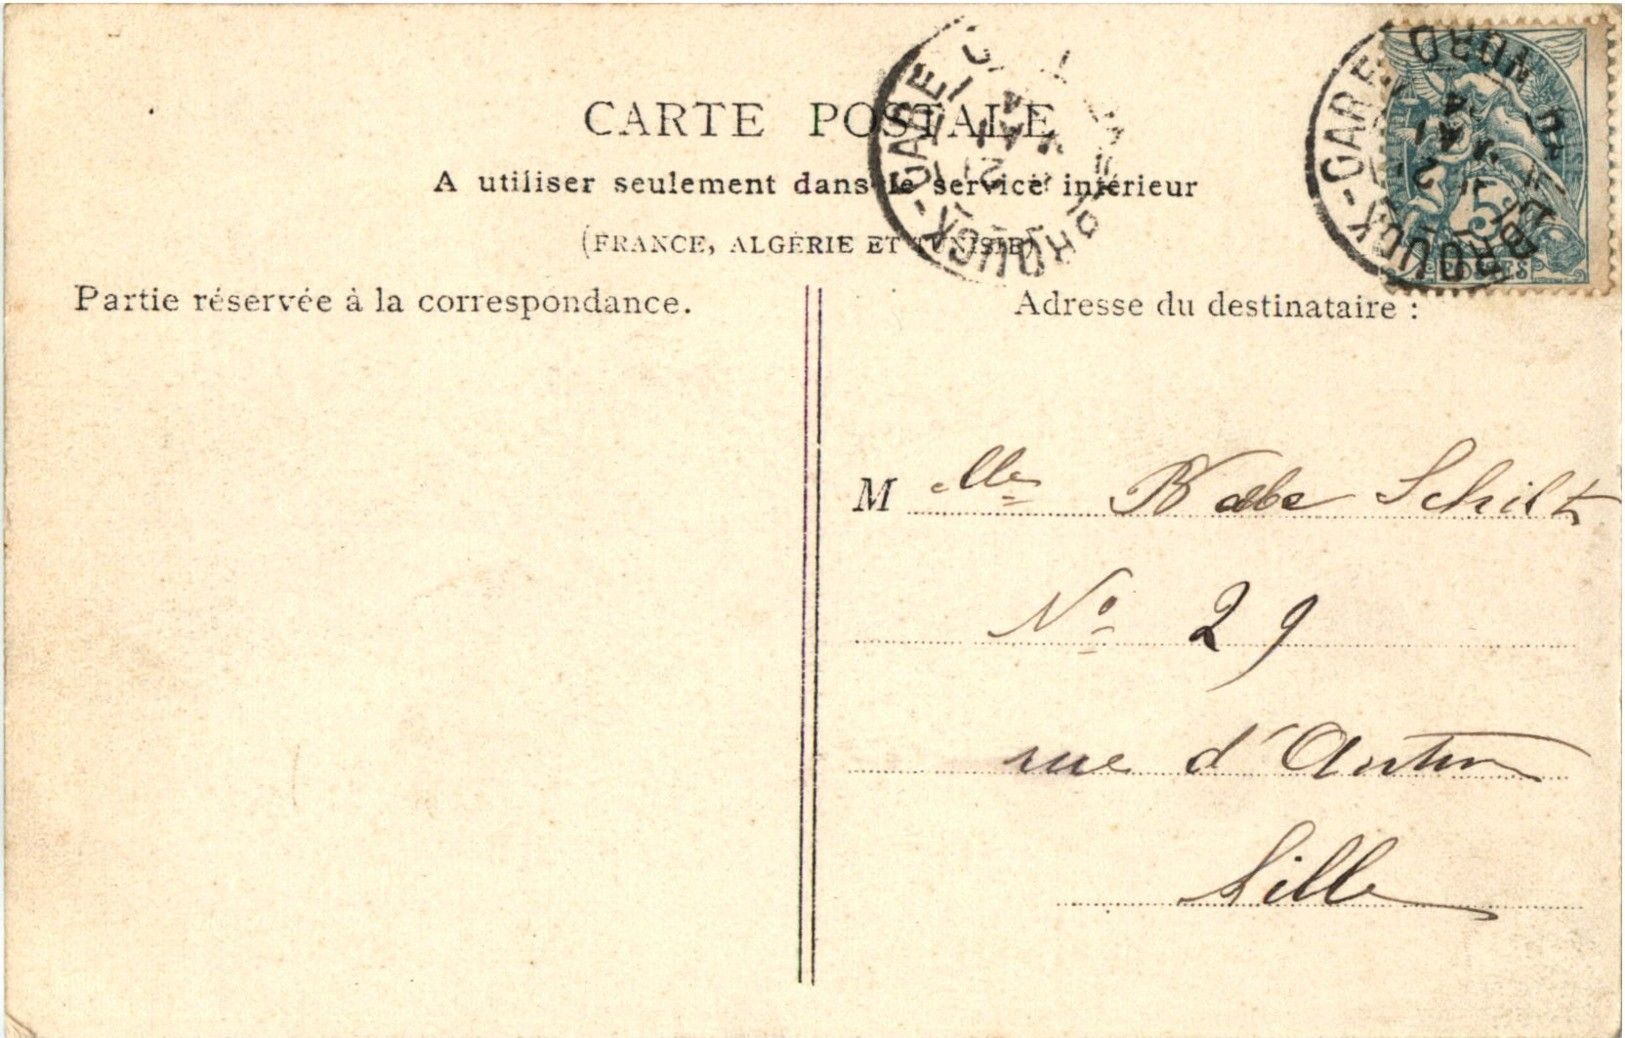 CARTE POSTALE
A utiliser seulement dans le service intérieur
(FRANCE, ALGÉRIE ET TUNISIE)
Partie réservée à la correspondance.
Adresse du destinataire :
GARE
NORD
5c
POSTES
Melle Schilt
No 29
rue d'Antin
Lille